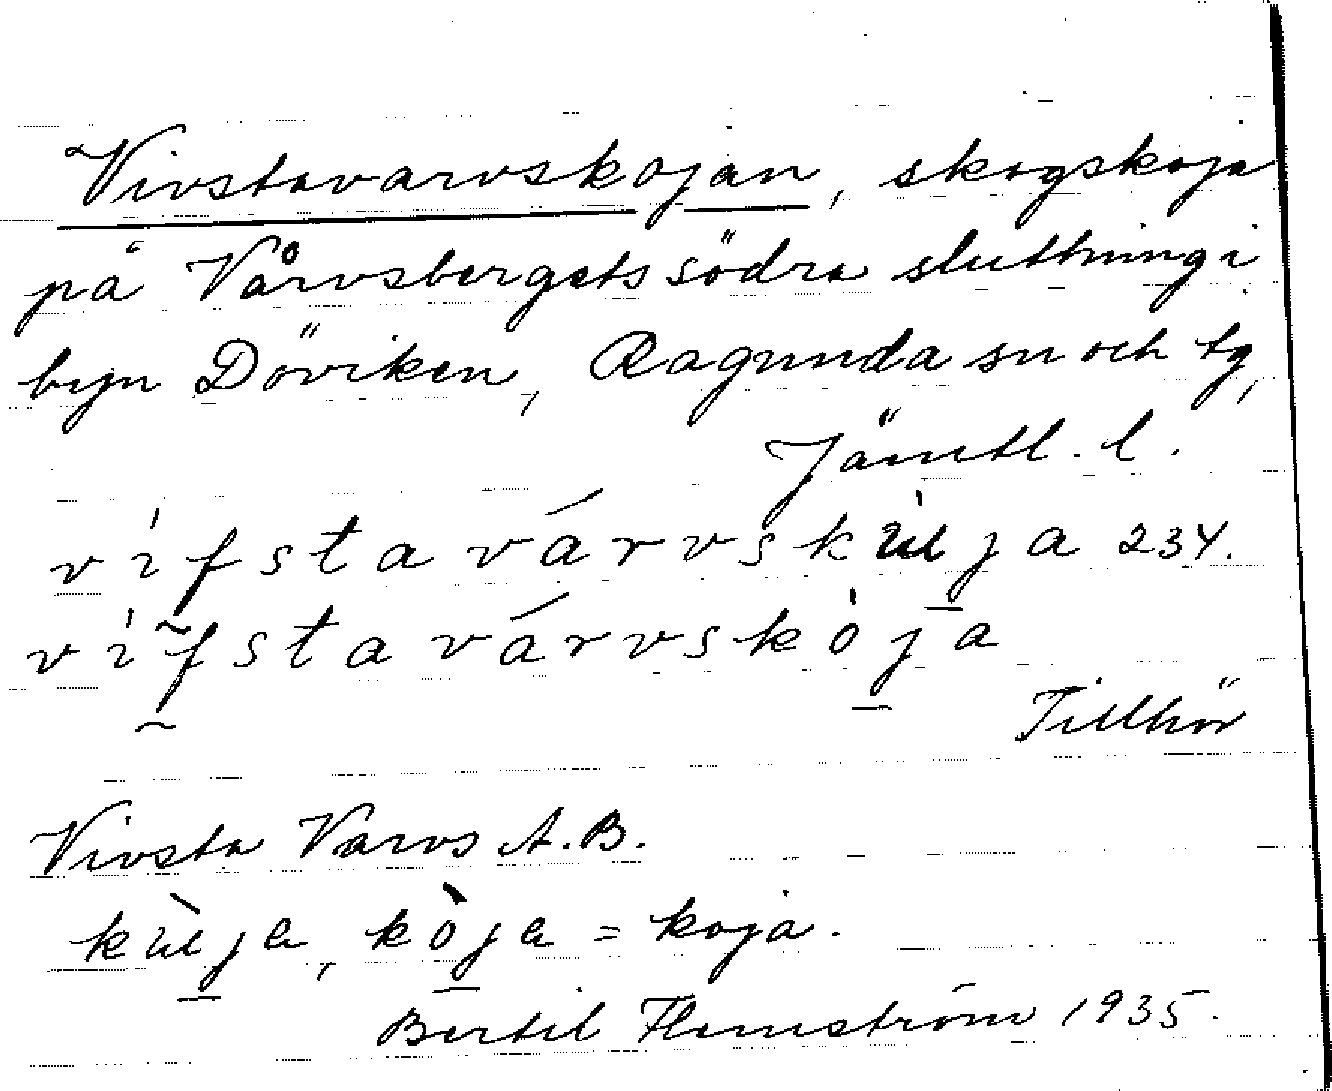 Vivstavarvskojan, skogskoja
på Vårvsbergets södra sluttning i
byn Döviken, Ragunda sn och tg,
Jämtl. l.
vifstavárvskɯja 234.
vifstavárvskòja
Tillhör
Vivsta Varvs A.B.
kɯ̀ja, kòja = koja.
Bertil Flemström 1935.